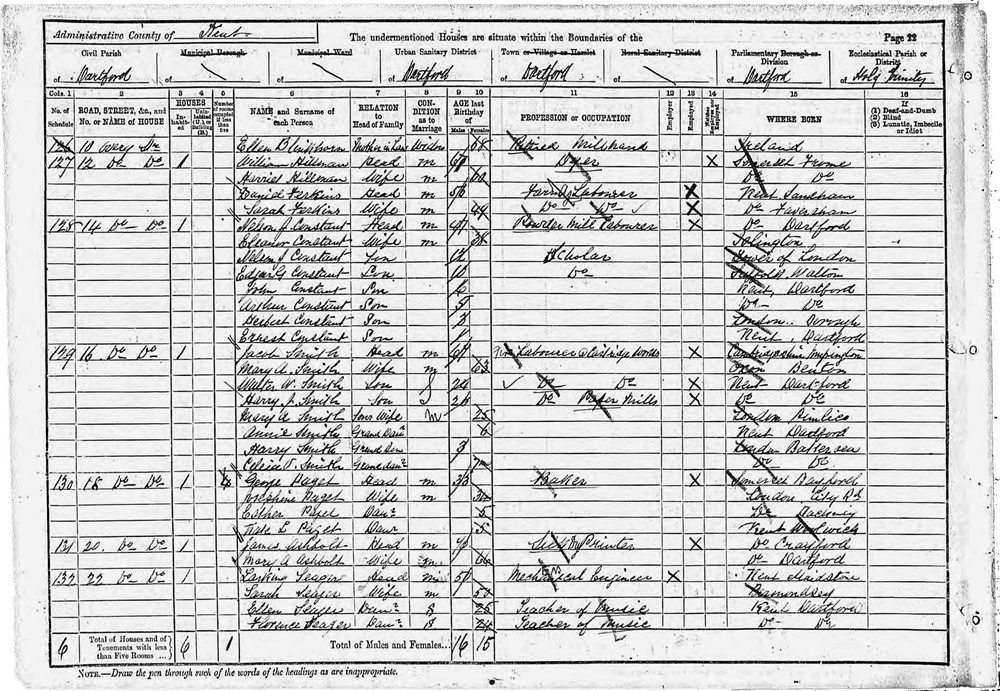 Administrative County of Kent
The undermentioned Houses are situate within the Boundaries of the
Page 22
Civil Parish
Municipal Borough
Municipal Ward
Urban Sanitary District
Town or Village or Hamlet
Rural Sanitary District
Parliamentary Borough or Division
Ecclesiastical Parish or District
of Dartford of of of Dartford of Dartford of of Dartford of Holy Trinity
Cols. 1 2 3 4 5 6 7 8 9 10 11 12 13 14 15 16
No. of Schedule
ROAD, STREET, &c., and No. or NAME of HOUSE
HOUSES
Inhabited
Uninhabited (U.), or Building (B.)
Number of rooms occupied if less than five
NAME and Surname of each Person
RELATION to Head of Family
CONDITION as to Marriage
AGE last Birthday of
Males
Females
PROFESSION or OCCUPATION
Employer
Employed
Neither Employer nor Employed
WHERE BORN
If
(1) Deaf-and-Dumb
(2) Blind
(3) Lunatic, Imbecile or Idiot
10 Ellen Mother in Law Widow 68 Retired Ireland
127 12 Do Do 1 William Hillman Head m Dyer Somerset Frome
Harriet Hillman Wife m 60 Do Do
David Ferkins Head m Farm Labourer Kent
Sarah Ferkins Wife m 44 Do Do Do Faversham
128 14 Do Do 1 Nelson J Constant Head m 47 Powder Mill Labourer Do Dartford
Eleanor Constant Wife m 38 Islington
Nelson J Constant Son 12 Scholar Tower of London
Edgar G Constant Son 10 Do Suffolk Walton
John Constant Son 6 Kent, Dartford
Arthur Constant Son 5 Do Do
Herbert Constant Son 3 London
Ernest Constant Son 1 Kent Dartford
129 16 Do Do 1 Jacob Smith Head m Labourer Cambridgeshire
Mary A. Smith Wife m 63 Oxon
Walter W. Smith Son S 24 Do Do Kent Dartford
Harry J. Smith Son 26 Do Paper Mills Do Do
Mary A Smith Sons Wife m 25 London Pimlico
Annie Smith Grand Daur 6 Kent Dartford
Harry Smith Grand Son 3 London Battersea
Smith Grand daur 7m Do Do
130 18 Do Do 1 4 George Paget Head m 33 Baker Somerset
Josephine Paget Wife m London City Rd
Esther Paget Daur 5 Do Hackney
Kate L Paget Daur 5 Kent Woolwich
131 20 Do Do 1 James Ashbolt Head m Silk Printer Do Crayford
Mary A Ashbolt Wife m Do Dartford
132 22 Do Do 1 Larking Seager Head m 51 Mechanical Engineer Kent Maidstone
Sarah Seager Wife m 50 Bermondsey
Ellen Seager Daur S 25 Teacher of Music Kent Dartford
Florence Seager Daur S 24 Teacher of Music Do Do
6 Total of Houses and of Tenements with less than Five Rooms ... 6 1 Total of Males and Females... 16 15
NOTE.—Draw the pen through such of the words of the headings as are inappropriate.